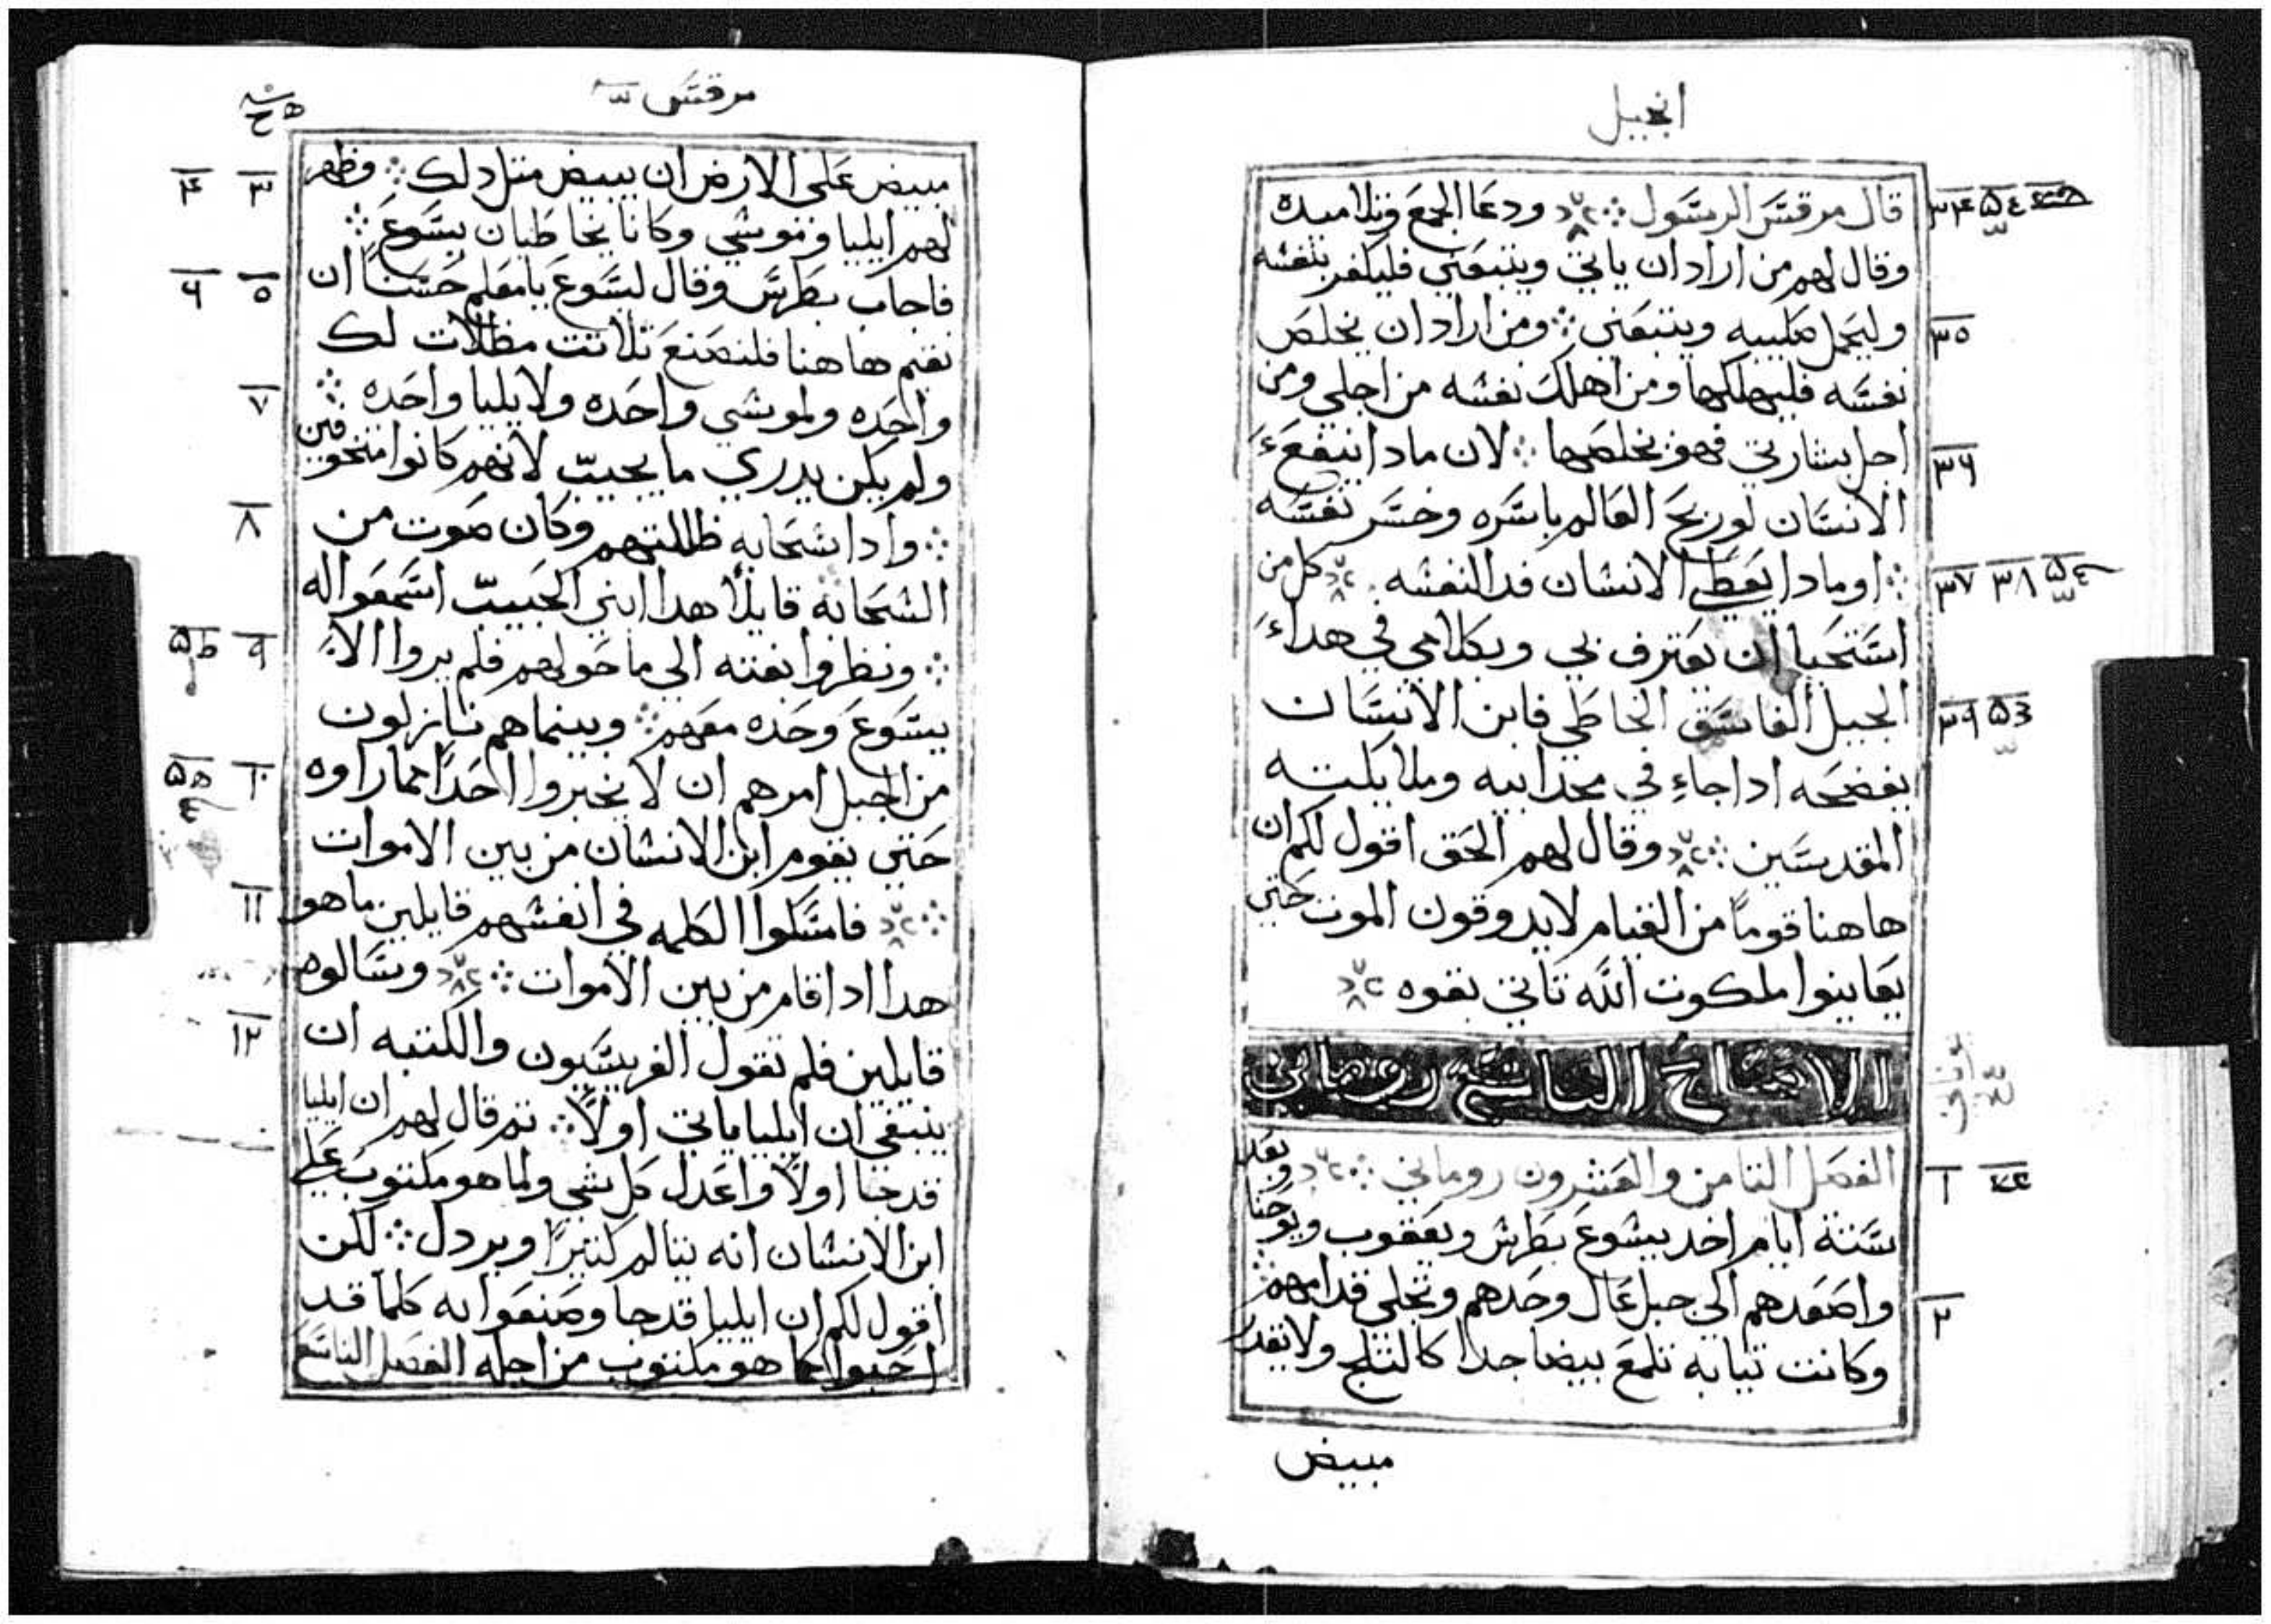 انجيل
قال مرقس الرسول ودعا الجمع وتلاميده
وقال لهم من اراد ان ياتي ويتبعني فليكفر بنفسه
وليحمل صليبه ويتبعني ومن اراد ان يخلص
نفسه فليهلكها ومن اهلك نفسه من اجلي ومن
اجل بشارتي فهو يخلصها لان مادا ينتفع
الانسان لو ربح العالم باسره وخسر نفسه
او مادا يعطي الانسان فدا لنفسه كل من
استحيا ان يعترف بي وبكلامي في هدا
الجيل الفاسق الخاطي فابن الانسان
يفضحه ادا جاء في مجد ابيه وملايكته
المقدسين وقال لهم الحق اقول لكم ان
هاهنا قوماً من القيام لايدوقون الموت حتي
يعاينوا ملكوت الله تاتي بقوه
الاصحاح التاسع روماني
الفصل التامن والعشرون روماني وبعد
ستة ايام اخد يسوع بطرس ويعقوب ويوحنا
واصعدهم الي جبل عال وحدهم وتجلي قدامهم
وكانت تيابه تلمع بيضا جدا كالتلج ولا يقدر
مبيض
٣٤
٣٥
٣٦
٣٧ ٣٨
٣٩
١
٢
مرقس
مبيض علي الارض ان يبيض متل دلك وظهر
لهم ايليا وموسي وكانا يخاطبان يسوع
فاجاب بطرس وقال ليسوع يا معلم حسناً ان
نقيم هاهنا فلنصنع تلاتت مظلات لك
واحده ولموسي واحده ولايليا واحده
ولم يكن يدري ما يجيب لانهم كانوا متخوفين
وادا سحابه ظللتهم وكان صوت من
السحابة قايلاً هدا ابني الحبيب اسمعوا له
ونظروا بغته الي ما حولهم فلم يروا الا
يسوع وحده معهم وبينما هم نازلون
من الجبل امرهم ان لا يخبروا احداً بما راوه
حتي يقوم ابن الانسان من بين الاموات
فامسكوا الكلمه في انفسهم قايلين ما هو
هدا ادا قام من بين الاموات وسالوه
قايلين فلم تقول الفريسيون والكتبه ان
ينبغي ان ايليا ياتي اولاً تم قال لهم ان ايليا
قد جا اولاً واعدل كل شي ولما هو مكتوب علي
ابن الانسان انه يتالم كتيراً ويردل لكن
اقول لكم ان ايليا قد جا وصنعوا به كلما قد
احبوا كما هو مكتوب من اجله الفصل التاسع
٣ ٤
٥ ٦
٧
٨
٩
١٠
١١
١٢